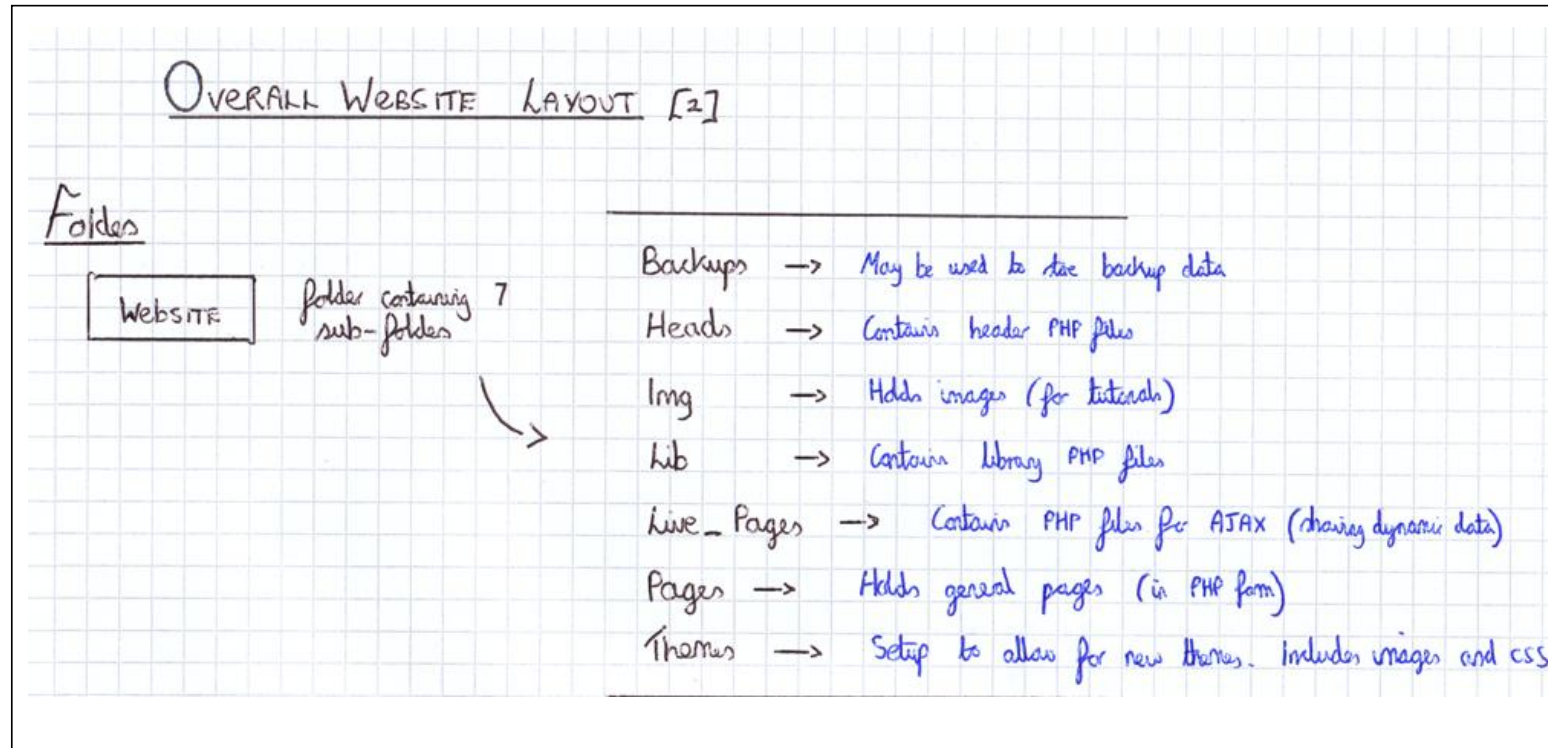 OVERALL WEBSITE LAYOUT [2]
Folders
WEBSITE
folder containing 7
sub-folders
Backups -> May be used to store backup data
Heads -> Contains header PHP files
Img -> Holds images (for tutorials)
Lib -> Contains library PHP files
Live_Pages -> Contains PHP files for AJAX (sharing dynamic data)
Pages -> Holds general pages (in PHP form)
Themes -> Setup to allow for new themes. includes images and CSS